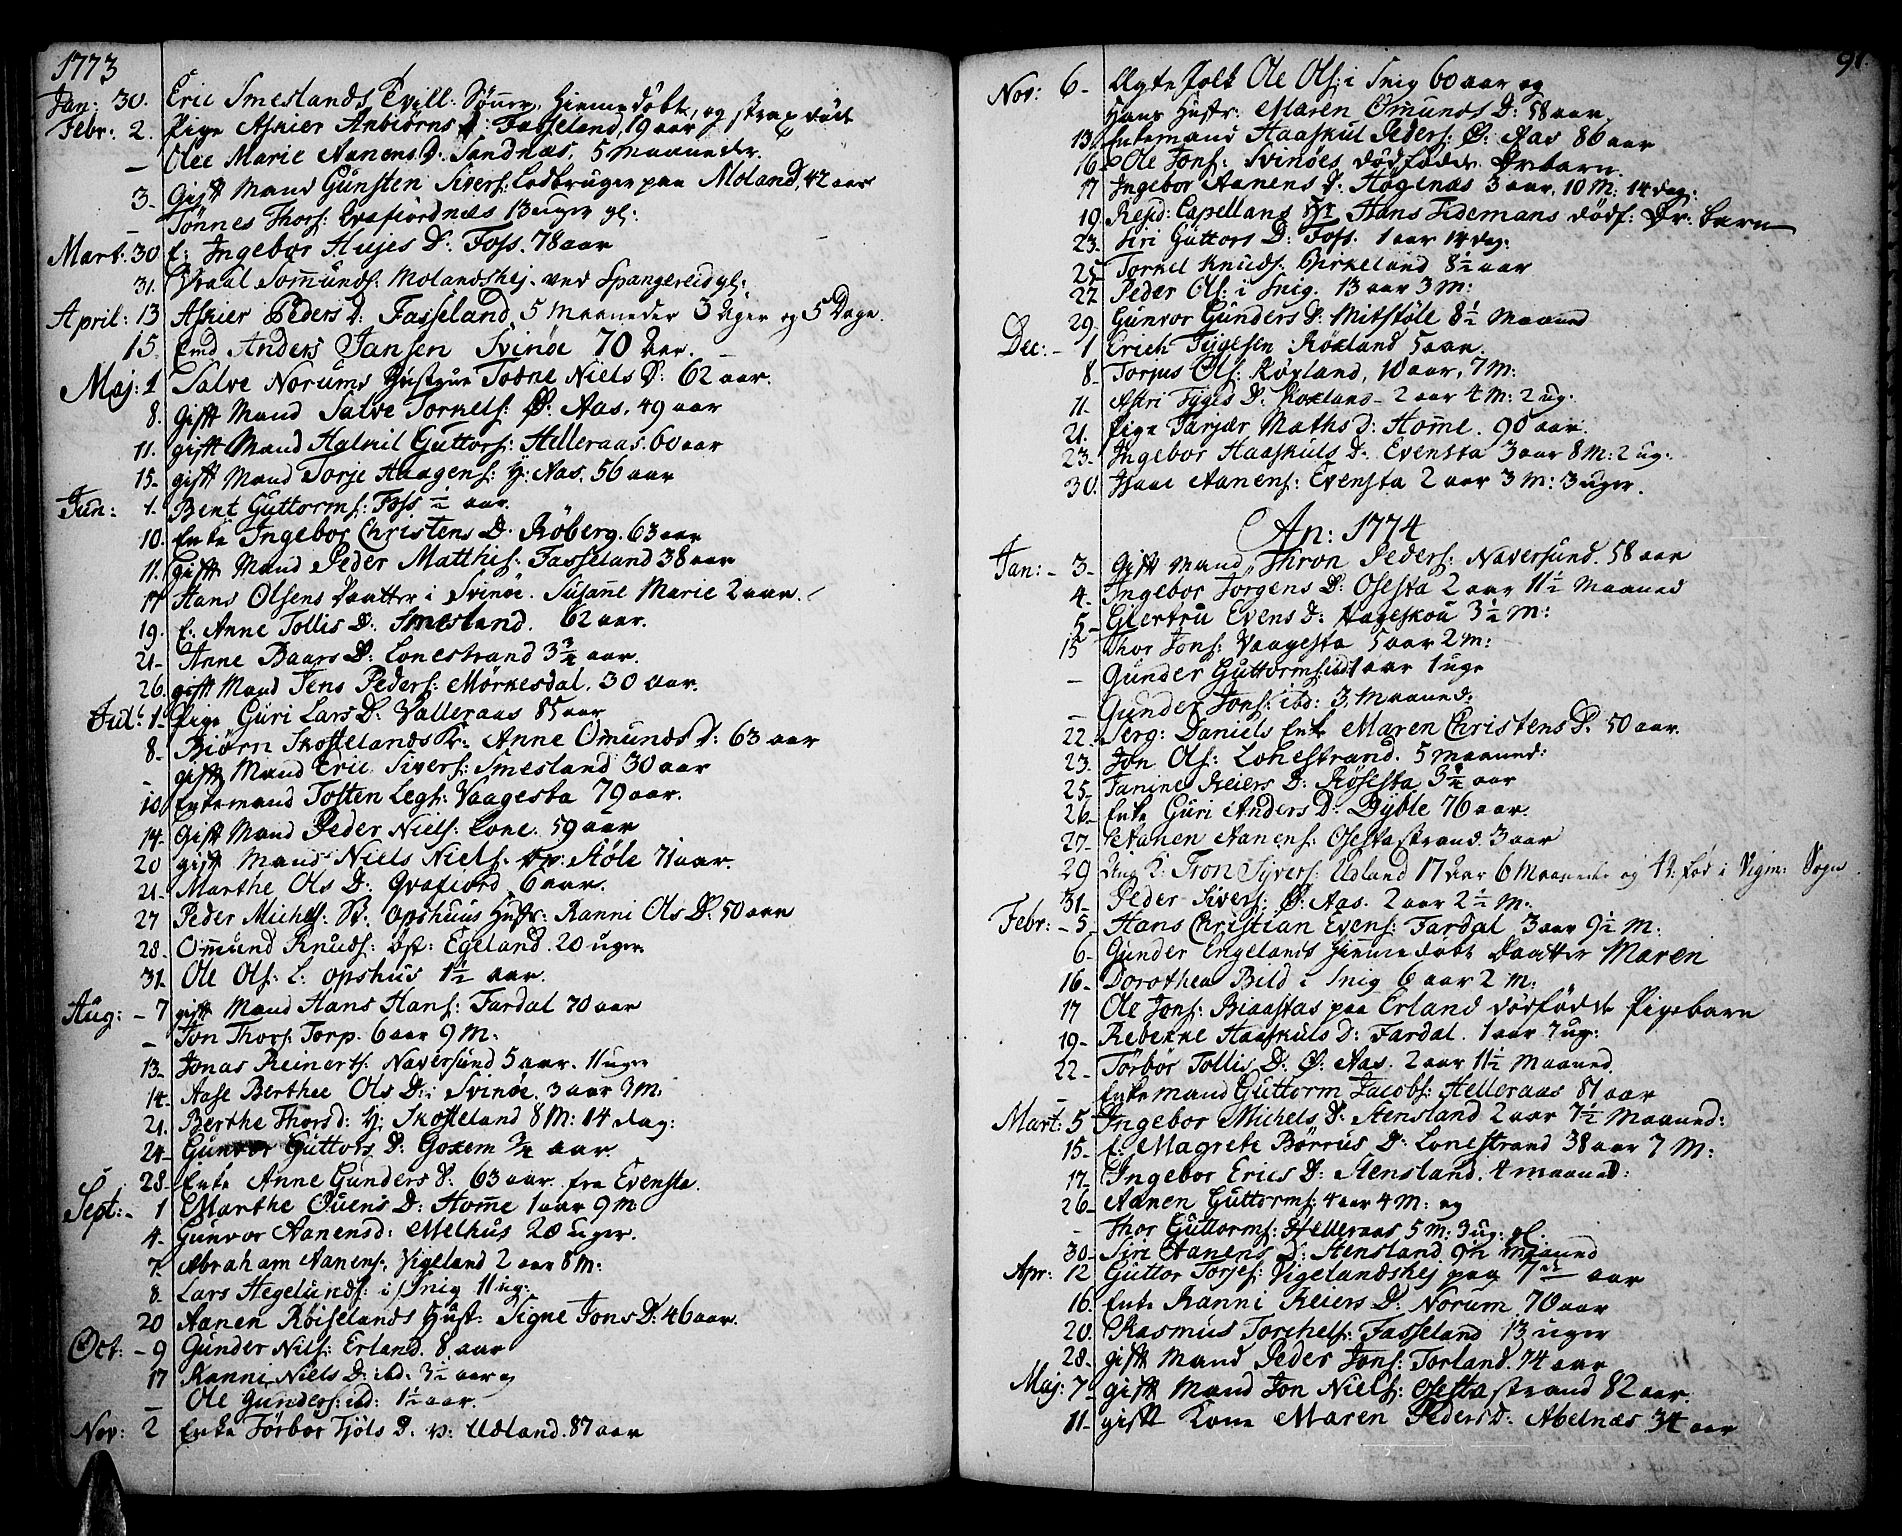 1773
Jan: 30. Eric Smeslands Søner, hiemedøbt, og strax død
Febr: 2. Pige Asrier Anbiørns D: Fasseland, 19 aar
— Olee Marie Aanens D: Sandnæs, 5 Maaneder.
3- Gift Mand Gunsten Sivers: Lodbruger paa Moland, 42 aar
— Tønnes Thors: Qvafiordnæs 13 uger gl:
Mart: 30 E: Ingebor Hujes D: Foss. 78 aar
31. Omund: Molandshej. ved Spangereid gl:
April: 13 Asrier Peders D: Fasseland 5 Maaneder 3 Uger og 5 Dage.
15. Emd Anders Jansen Svinøe 70 Aar. —
Maj: 1 Salve Norums Hustrue Todne Niels D: 62 aar.
8. gift Mand Salve Torkels: Ø: Aas. 49 aar
11. gift Mand Halvil Guttors: Helleraas. 60 aar
15. gift Mand Torje Haagens: Y: Aas. 56 aar
Jun: 1. Bent Guttorms: Foss ½ aar.
10. Enke Ingebor Christens D: Røberg. 63 aar
11. gift Mand Peder Matthis: Fasseland 38 aar
17 Hans Olsens Daatter i Svinøe. Susane Marie 2 aar.
19. E: Anne Tollis D: Smesland. 62 aar.
21- Anne Baars D: Lonestrand 3¾ aar.
26. gift Mand Jens Peders: Mørkesdal. 30 aar.
Jul: 1- Pige Guri Lars D: Valleraas 85 aar
8- Biørn Skofselands K: Anne Omunds D: 63 aar
- gift Mand Eric Sivers: Smesland 30 aar
10 Enkemand Tosten Legs: Vaagesta 79 aar.
14. Gift Mand Peder Niels: Lone. 59 aar
20 gift Mand Niels Niels: Støle 71 aar.
21- Marthe Ols D: Qvafiord 6 aar.
27 Peder Michels: St. Opshuus Hustr: Ranni Ols D: 50 aar
28. Omund Knuds: Øst: Egeland. 20 uger
31. Ole Ols: L: Opshus 1½ aar.
Aug: - 7 gift Mand Hans Hans: Tardal 70 aar
— Jon Thors: Torp. 6 aar 9 M:
13. Jonas Reinerts: Naversund 5 aar. 11 uger
14. Aase Berthee Ols D: i Svinøe. 3 aar 3 M:
21. Berthe Thors d: Y: Skofseland 8 M: 14 dag:
24- Gunvor Guttors D: Goxem ¾ aar.
28. Enke Anne Gunders D. 63 aar. fra Evensta.
Sept: - 1 Marthe Ouens D: Home 1 aar 9 M:
4. Gunvor Aanens d: Melhus 20 uger.
7. Abraham Aanens: Vigeland 2 aar 8 M:
8. Lars Hegelunds: i Snig 11 ug:
20 Aanen Røiselands Hust: Signe Jons D: 46 aar.
Oct: - 9 Gunder Nils: Erland. 8 aar
17 Ranni Niels D: ibd. 3½ aar og
— Ole Gunders: ibd: 1½ aar.
Nov: 2 Enke Tørbor Tjøls D: v: Udland. 87 aar
91.
Nov: 6- Ægte Folk Ole Ols: i Snig 60 aar og
Hans Hustr: Maren Omunds D: 58 aar
13. Enkemand Haaskul Peders: Ø: Aas 86 aar
16- Ole Jons: Svinøes dødfødde Dr: barn.
17 Ingebor Aanens D: Høgenæs 3 aar. 10 M: 14 dag:
19. Resd: Capellans Hr Hans Tidemans dødf: Dr: barn
23. Siri Guttors D: Foss. 1 aar 14 dag:
25 Torkel Knuds: Birkeland 8½ aar
27 Peder Ols: i Snig. 13 aar 3 M:
29. Gunvor Gunders D: Mitstøle 8½ Maaned
Dec: - 1 Erich Tygesen Røxland 5 aar.
8- Torjus Ols: Røxland, 10 aar, 7 M:
11. Astri Tyges D: Roxland- 2 aar 4 M: 2 ug.
21. Pige Tarjær Maths D: Home. 90 aar.
23. Ingebor Haaskuls D. Evensta 3 aar 8 M: 2 ug:
30. Aanens: Evensta 2 aar 3 M: 3 uger.
An: 1774
Jan: - 3- Gift Mand Thron Peders: Naversund. 58 aar
4. Ingebor Jorgens D: Osesta 2 aar 11½ Maaned
5- Giertru Evens D: Hageskou 3½ M:
15 Thor Jons: Vaagesta 5 aar 2 M:
— Gunder Guttorms: ibd 1 aar 1 uge
— Gunder Jons: ibd: 3 Maaned:
22. Serg: Daniels Enke Maren Christens D. 50 aar.
23. Jon Ols: Lonestrand. 5 Maaned:
25- Tanine Reiers D: Røsesta 3¾ aar
26- Enke Guri Anders D. Dyble 76 aar.
27- Aanen Aanens: Osestastrand. 3 aar
29 Ung K. Tron Syvers: Udland 17 Aar 6 Maaneder og 4 D: fød i Vigm: Sogn
31- Peder Sivers: Ø: Aas. 2 aar 2½ M:
Febr: - 5. Hans Christian Evens: Tardal 3 aar 9½ M:
6- Gunder Engelands hiemedøbt Daatter Maren
16- Dorothea Bild i Snig 6 aar 2 M:
17 Ole Jons: Biaastas paa Erland dødfødde Pigebarn
19- Rebekke Haaskuls D: Fardal. 1 aar 7 ug:
22- Tørbør Tollis D: Ø: Aas. 2 aar 11½ Maaned
— Enkemand Guttorm Jacobs: Helleraas 81 aar
Mart: 5 Ingebor Michels D. Stensland 2 aar 7½ Maaned:
15- E: Magrete Børrus D: Lonestrand 38 aar 7 M:
17- Ingebor Erics D: Stensland. 4 maaned:
26- Aanen Guttorms: 4 aar 4 M: og
- Thor Guttorms: Helleraas 5 M: 3 ug: gl.
30- Siri Aanens D: Stensland 9½ Maaned
Apr: 12 Guttor Torjes: Vigelandshej paa 7de aar
16. Enke Ranni Reiers D: Norum 70 aar
20. Rasmus Torchels: Fasseland 13 uger
28- gift Mand Peder Jons: Torland. 74 aar
Maj: 7- gift Mand Jon Niels: Osestastrand 82 aar.
11. gift Kone Maren Peders D: Abelnæs 34 aar